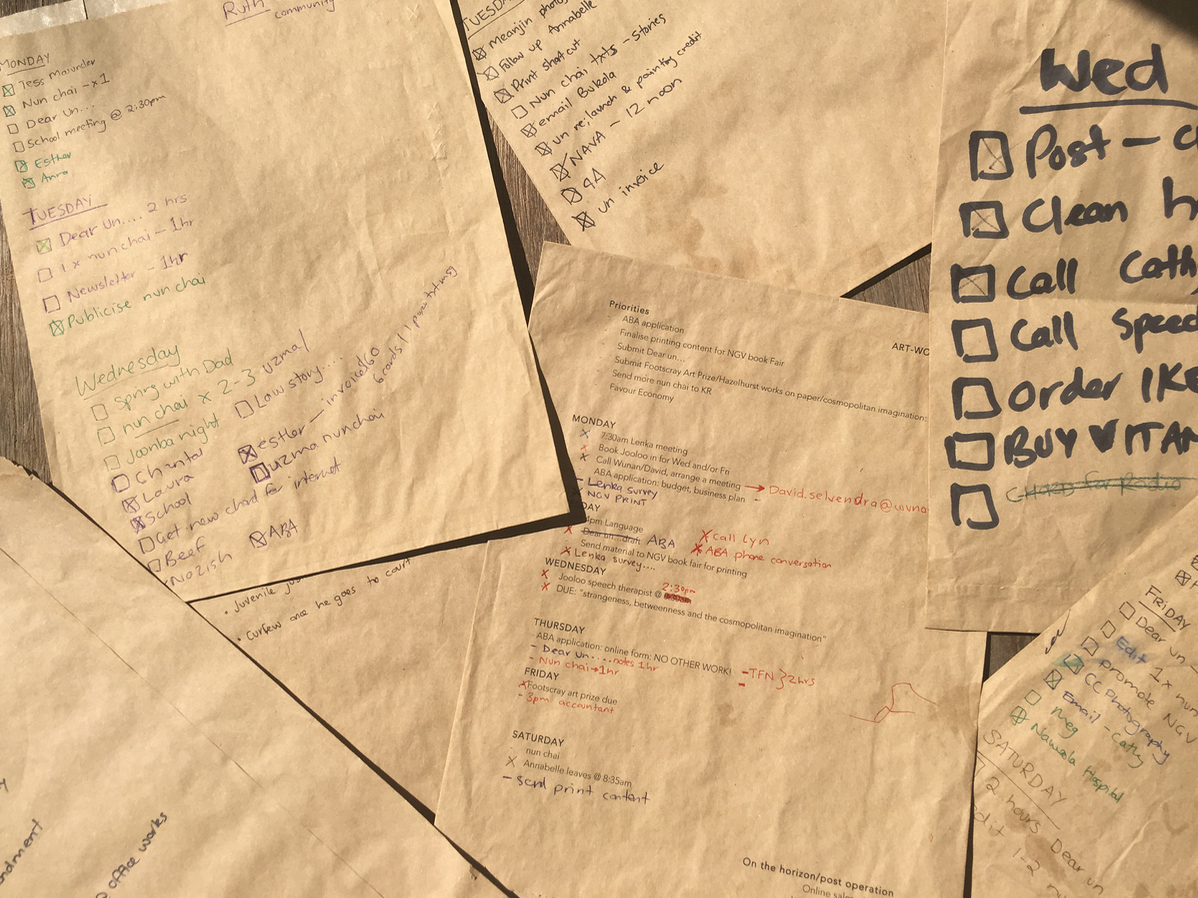 Ruth community
MONDAY
Tess
Nun chai - x1
Dear un...
School meeting @ 2:30pm
Esther
Anna
TUESDAY
Dear un.... 2 hrs
1 x nun chai - 1hr
Newsletter - 1hr
Publicise nun chai
Wednesday
Spring with Dad
nun chai x 2-3 uzma/
Joonba night
Law story...
Chantal
Laura
esther - invoiced 60
6 cards / 1
School
uzma nunchai
Get new chard for internet
Beef
ABA
TUESDAY
meanjin photos
Follow up Annabelle
Print shortcut
Nun chai txts - stories
email Bukola
un re;launch & painting credit
NAVA - 12 noon
4A
un invoice
Wed
Post - C
Clean h
Call Cathy
Call Speec
Order IKE
BUY VITAM
CHARD for Radio
Priorities
ABA application
Finalise printing content for NGV book Fair
Submit Dear un...
Submit Footscray Art Prize/Hazelhurst works on paper/cosmopolitan imagination:
Send more nun chai to KR
Favour Economy
ART-WO
MONDAY
7:30am Lenka meeting
Book Jooloo in for Wed and/or Fri
Call Wunan/David, arrange a meeting → David.selvendra@wuna
ABA application: budget, business plan -
- Lenka survry
- NGV PRINT
DAY
4pm Language
Dear un...draft ABA
x call Lyn
Send material to NGV book fair for printing
x ABA phone conversation
x Lenka survey....
WEDNESDAY
x Jooloo speech therapist @ 2:30pm
x DUE: "strangeness, betweenness and the cosmopolitan imagination"
THURSDAY
- ABA application: online form: NO OTHER WORK!
- Dear un.... notes 1hr
- TFN } 2hrs
- Nun chai → 1hr
FRIDAY
x Footscray art prize due
- 3pm accountant
SATURDAY
nun chai
x Annabelle leaves @ 8:35am
- Send print content
On the horizon/post operation
Online sale
• Juvenile jus
• Curfew once he goes to court
FRIDAY
Dear un -
Edit 1 x nun
promote NGV
CC Photography
Email - Cathy
Meg
Nawala Hospital
SATURDAY
2 hours Dear un
edit 1-2 n
ndment
office works